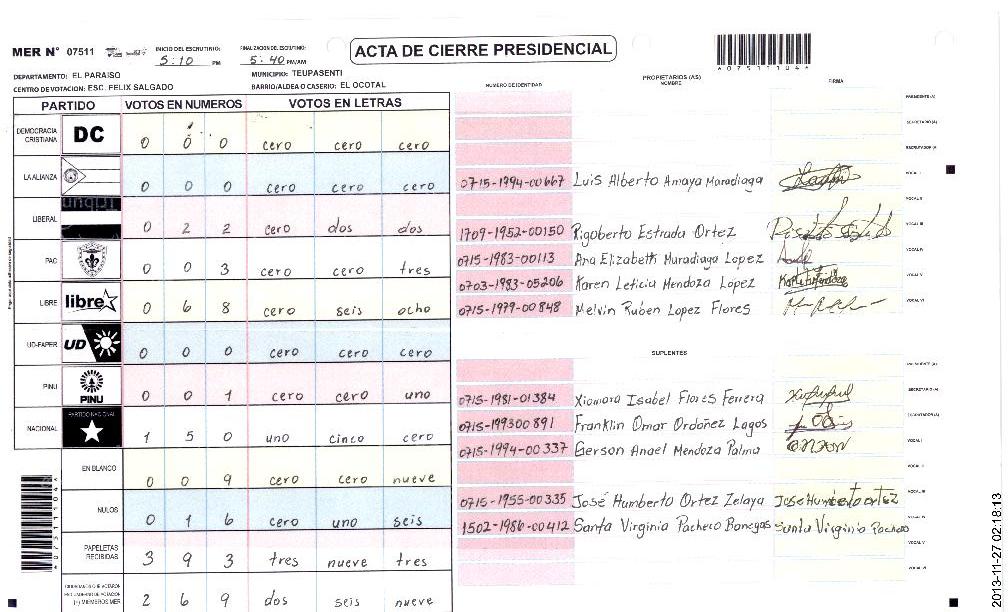 MER N° 07511
INICIO DEL ESCRUTINIO: 5:10 PM
FINALIZACION DEL ESCRUTINIO: 5:40 PM/AM
ACTA DE CIERRE PRESIDENCIAL
DEPARTAMENTO: EL PARAISO
MUNICIPIO: TEUPASENTI
CENTRO DE VOTACION: ESC. FELIX SALGADO
BARRIO/ALDEA O CASERIO: EL OCOTAL
PARTIDO VOTOS EN NUMEROS VOTOS EN LETRAS
DEMOCRACIA CRISTIANA DC 0 0 0 cero cero cero
LA ALIANZA 0 0 0 cero cero cero
LIBERAL 0 2 2 cero dos dos
PAC 0 0 3 cero cero tres
LIBRE libre 0 6 8 cero seis ocho
UD-FAPER UD 0 0 0 cero cero cero
PINU PINU 0 0 1 cero cero uno
NACIONAL PARTIDO NACIONAL 1 5 0 uno cinco cero
EN BLANCO 0 0 9 cero cero nueve
NULOS 0 1 6 cero uno seis
PAPELETAS RECIBIDAS 3 9 3 tres nueve tres
CIUDADANOS QUE VOTARON
(+) MIEMBROS MER 2 6 9 dos seis nueve
NUMERO DE IDENTIDAD
PROPIETARIOS (AS)
NOMBRE
FIRMA
0715-1994-00667 Luis Alberto Amaya Maradiaga
1709-1952-00150 Rigoberto Estrada Ortez
0715-1983-00113 Ana Elizabeth Muradiaga Lopez
0703-1983-05206 Karen Leticia Mendoza López
0715-1979-00848 Melvin Rúben Lopez Flores
SUPLENTES
0715-1981-01384 Xiomara Isabel Flores Ferrera
0715-199300891 Franklin Omar Ordoñez Lagos
0715-1994-00337 Gerson Anael Mendoza Palma
0715-1955-00335 José Humberto Ortez Zelaya José Humberto ortez
1502-1986-00412 Santa Virginia Pacheco Banegas Santa Virginia Pacheco
2013-11-27 02:18:13